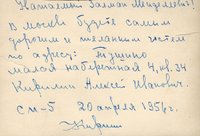 Уважаемый Залман Менделевич!
В москве будете самим
дорогим и желанным гостем
по адресу: Тушино
малая набережная 4, кв. 34
Кирилин Алексей Иванович.
см-5 20 апреля 1956 г.